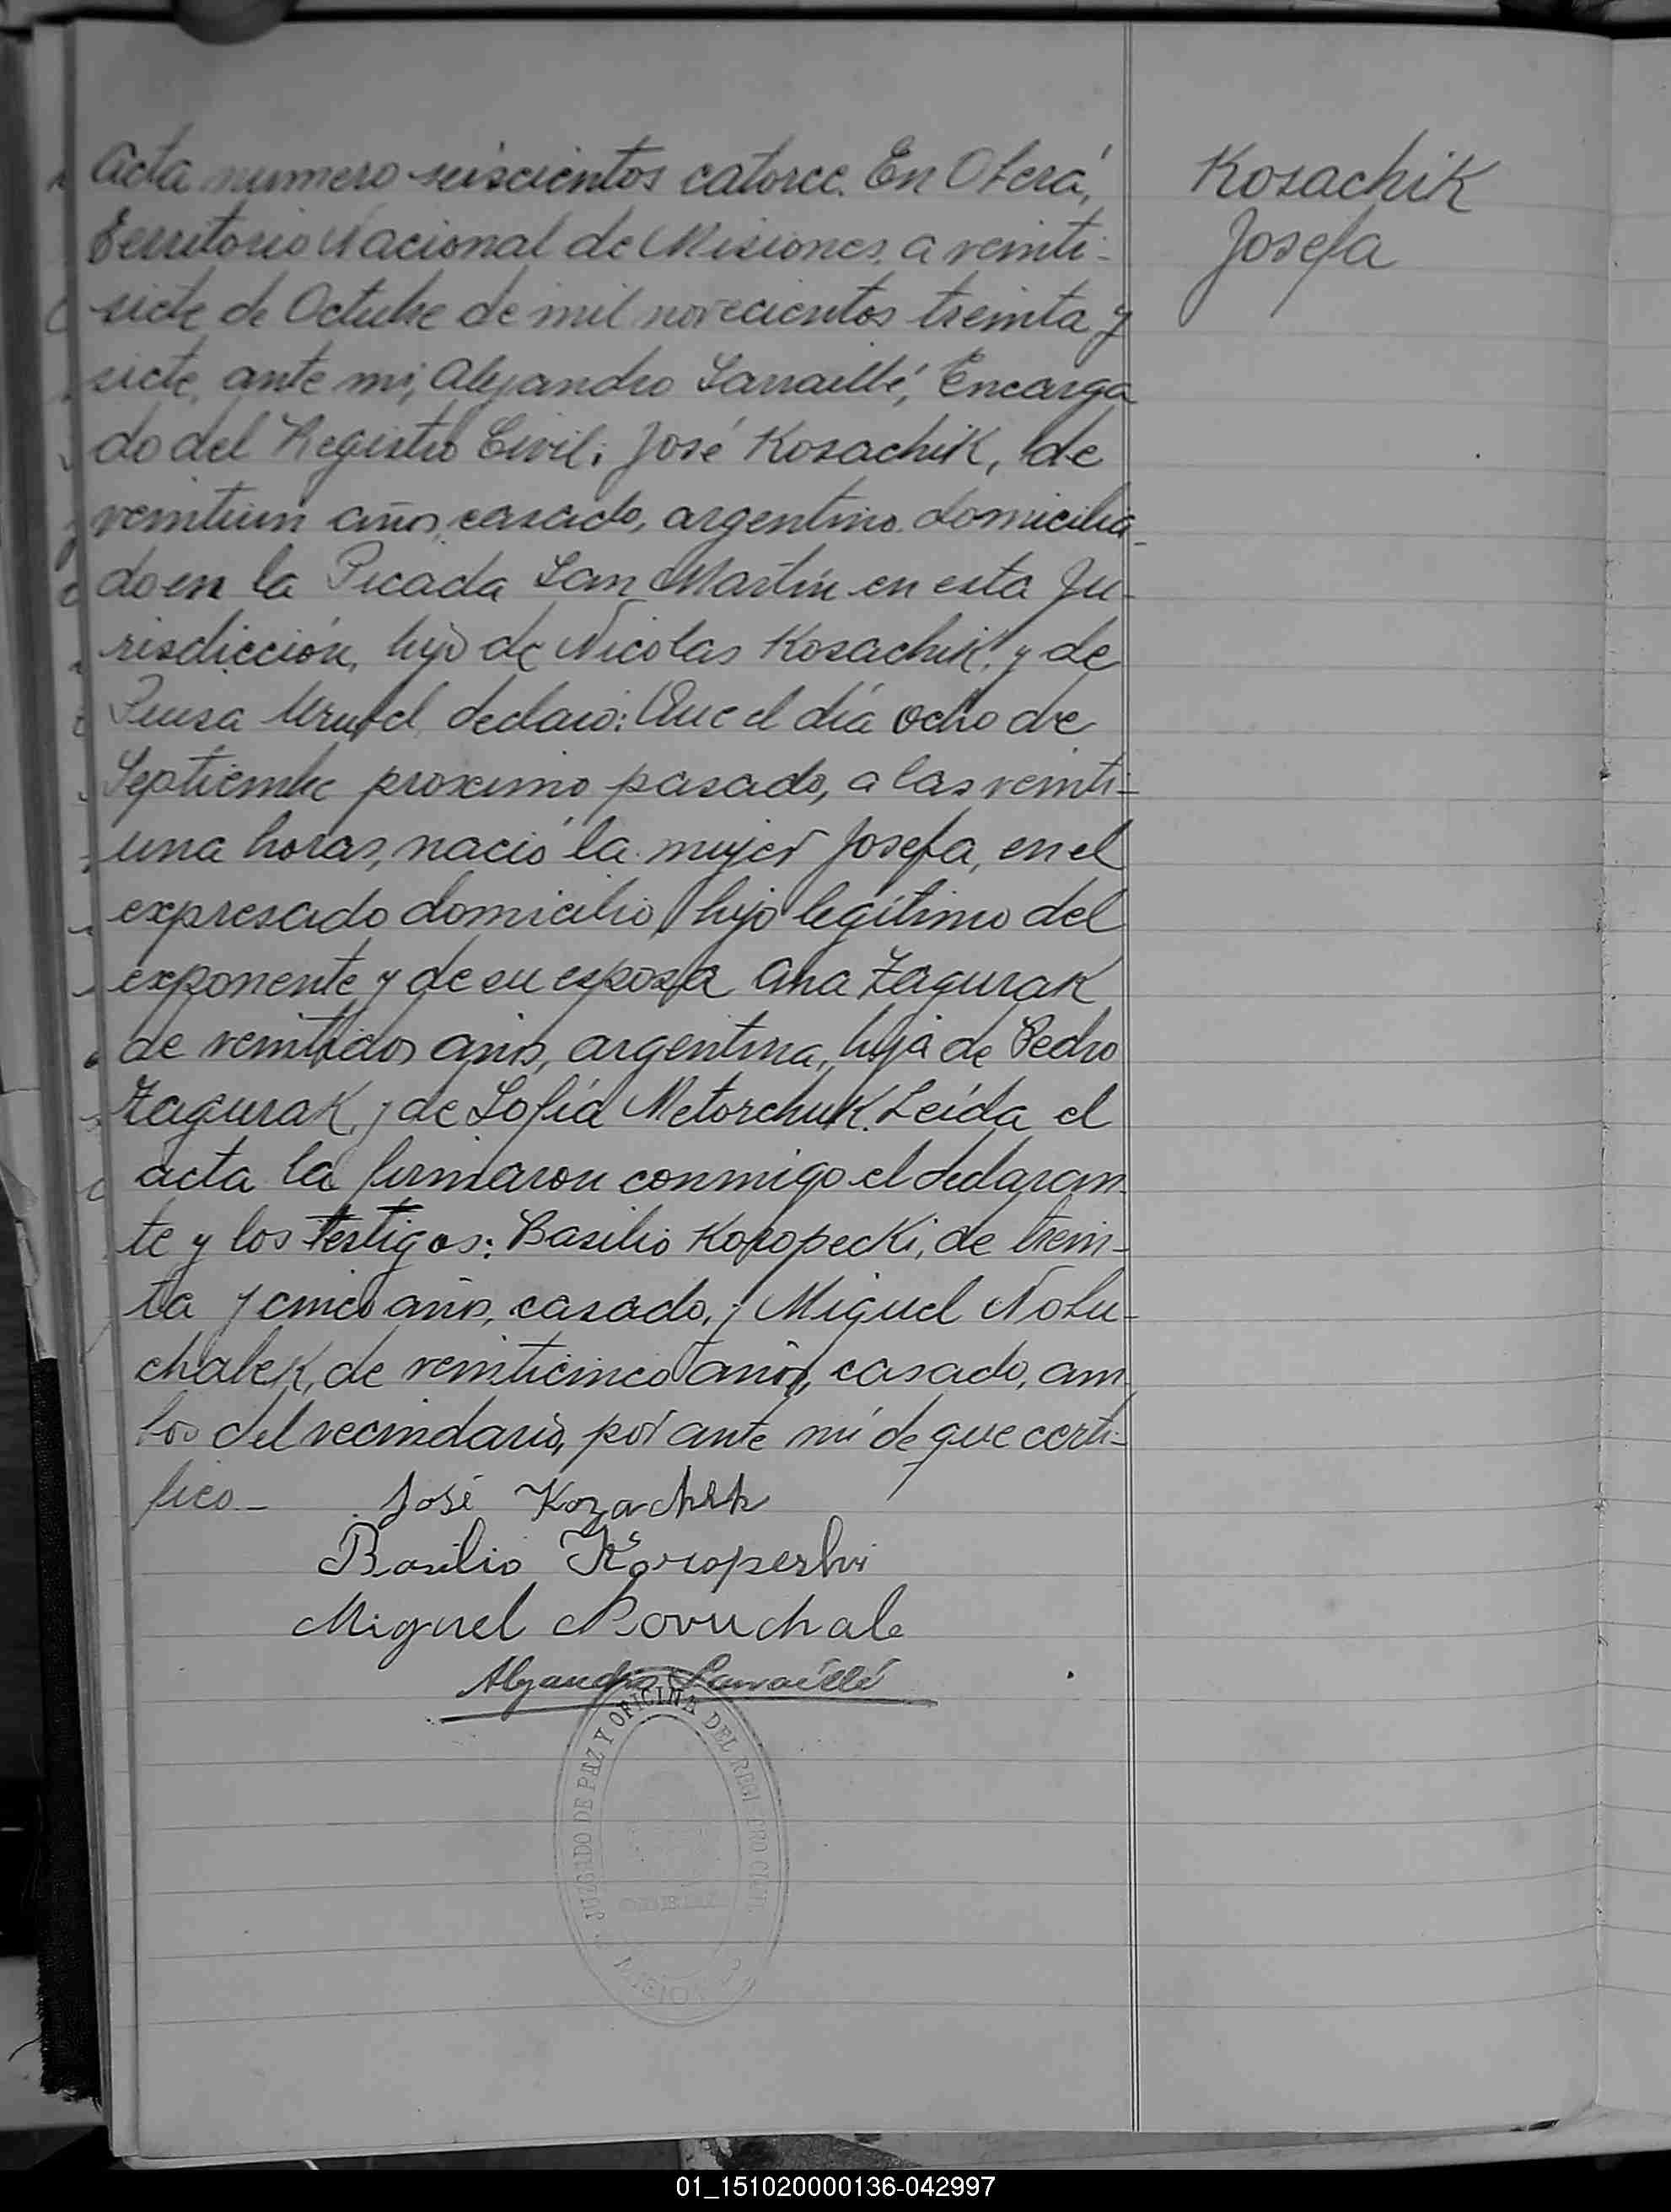 Acta numero seiscientos catorce. En Oberá,
Kosachik
Josefa
Territorio Nacional de Misiones, a veinti-
siete de Octubre de mil novecientos treinta y
siete, ante mi, Alejandro Sarraillé, Encarga
do del Registro Civil: José Kosachik, de
veintiun años, casado, argentino, domicilia-
do en la Picada San Martín en esta Ju-
risdicción, hijo de Nicolas Kosachik y de
declaro: Que el día ocho de
Septiembre proximo pasado, a las veinti-
una horas, nació la mujer Josefa, en el
expresado domicilio, hijo legítimo del
exponente y de su esposa Ana Zagurak
de veintidos años, argentina, hija de Pedro
Zagurak, y de Sofía Metorchuk. Leída el
acta la firmaron conmigo el declaran-
te y los testigos: Basilio Koropecki, de trein-
ta y cinco años, casado, y Miguel Nobu-
chalek, de veinticinco años, casado, am
bos del vecindario, por ante mí de que certi-
fico._
José Kozachik
Basilio Koropeski
Miguel Novuchale
Alejandro Sarraillé
JUZGADO DE PAZ Y OFICINA DEL REGISTRO CIVIL
01_151020000136-042997